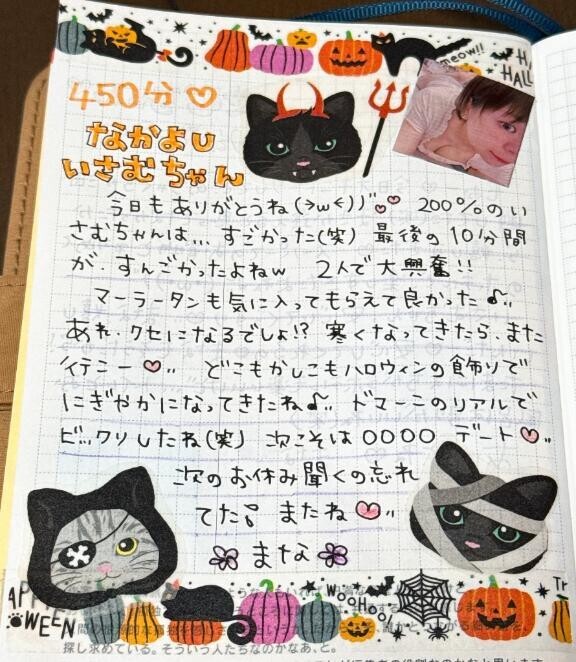 meow!!
HA
HALL
450分♡
なかよし
いさむちゃん
今日もありがとうね(>w<)))"♡♡ 200%のい
さむちゃんは…すごかった(笑) 最後の10分間
が、すんごかったよねw 2人で大興奮!!
マーラータンも気に入ってもらえて良かった♪''
あれ、クセになるでしょ!? 寒くなってきたら、また
イテニー♡'' どこもかしこもハロウィンの飾りで
にぎやかになってきたね♪'' ドマーニのリアルで
ビックリしたね(笑) 次こそは〇〇〇〇 デート♡''
次のお休み聞くの忘れ
てた! またね♡''
まな
APP
WEEN
WOOHOO!
Tr
探し求めている。そういう人たちなのかなあ、と。